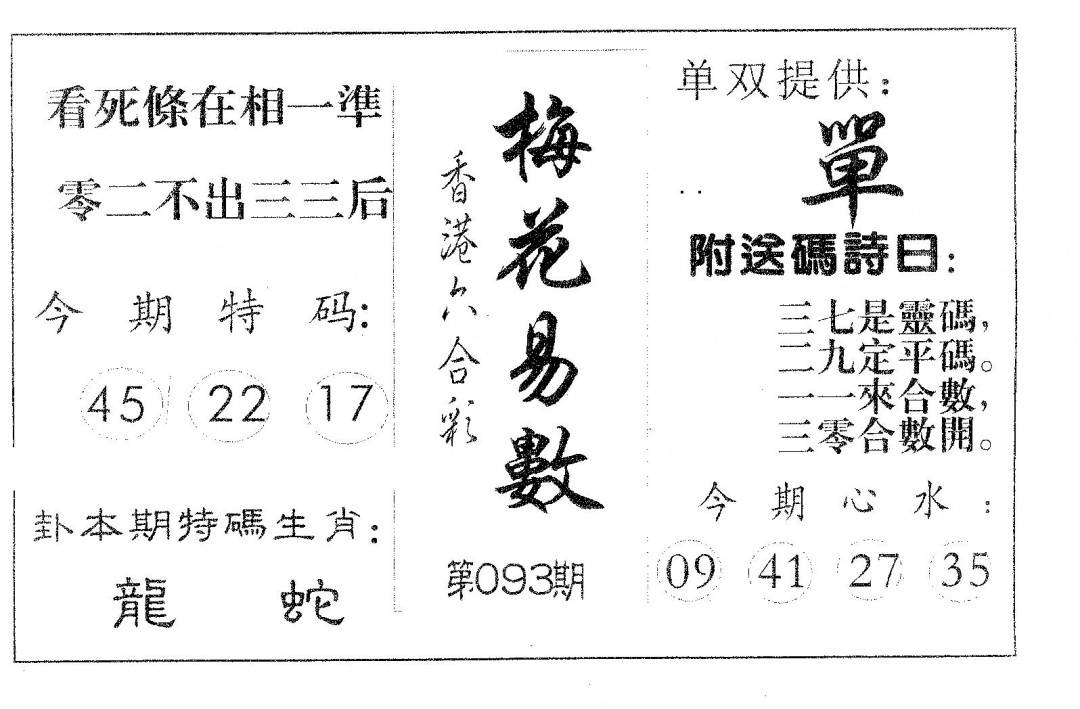 看死條在相一準
零二不出三三后
今期特码:
45 22 17
卦本期特碼生肖:
龍 蛇
梅花易數
香港六合彩
第093期
单双提供:
單
附送碼詩曰:
三七是靈碼,
二九定平碼。
一一來合數,
三零合數開。
今期心水:
09 41 27 35